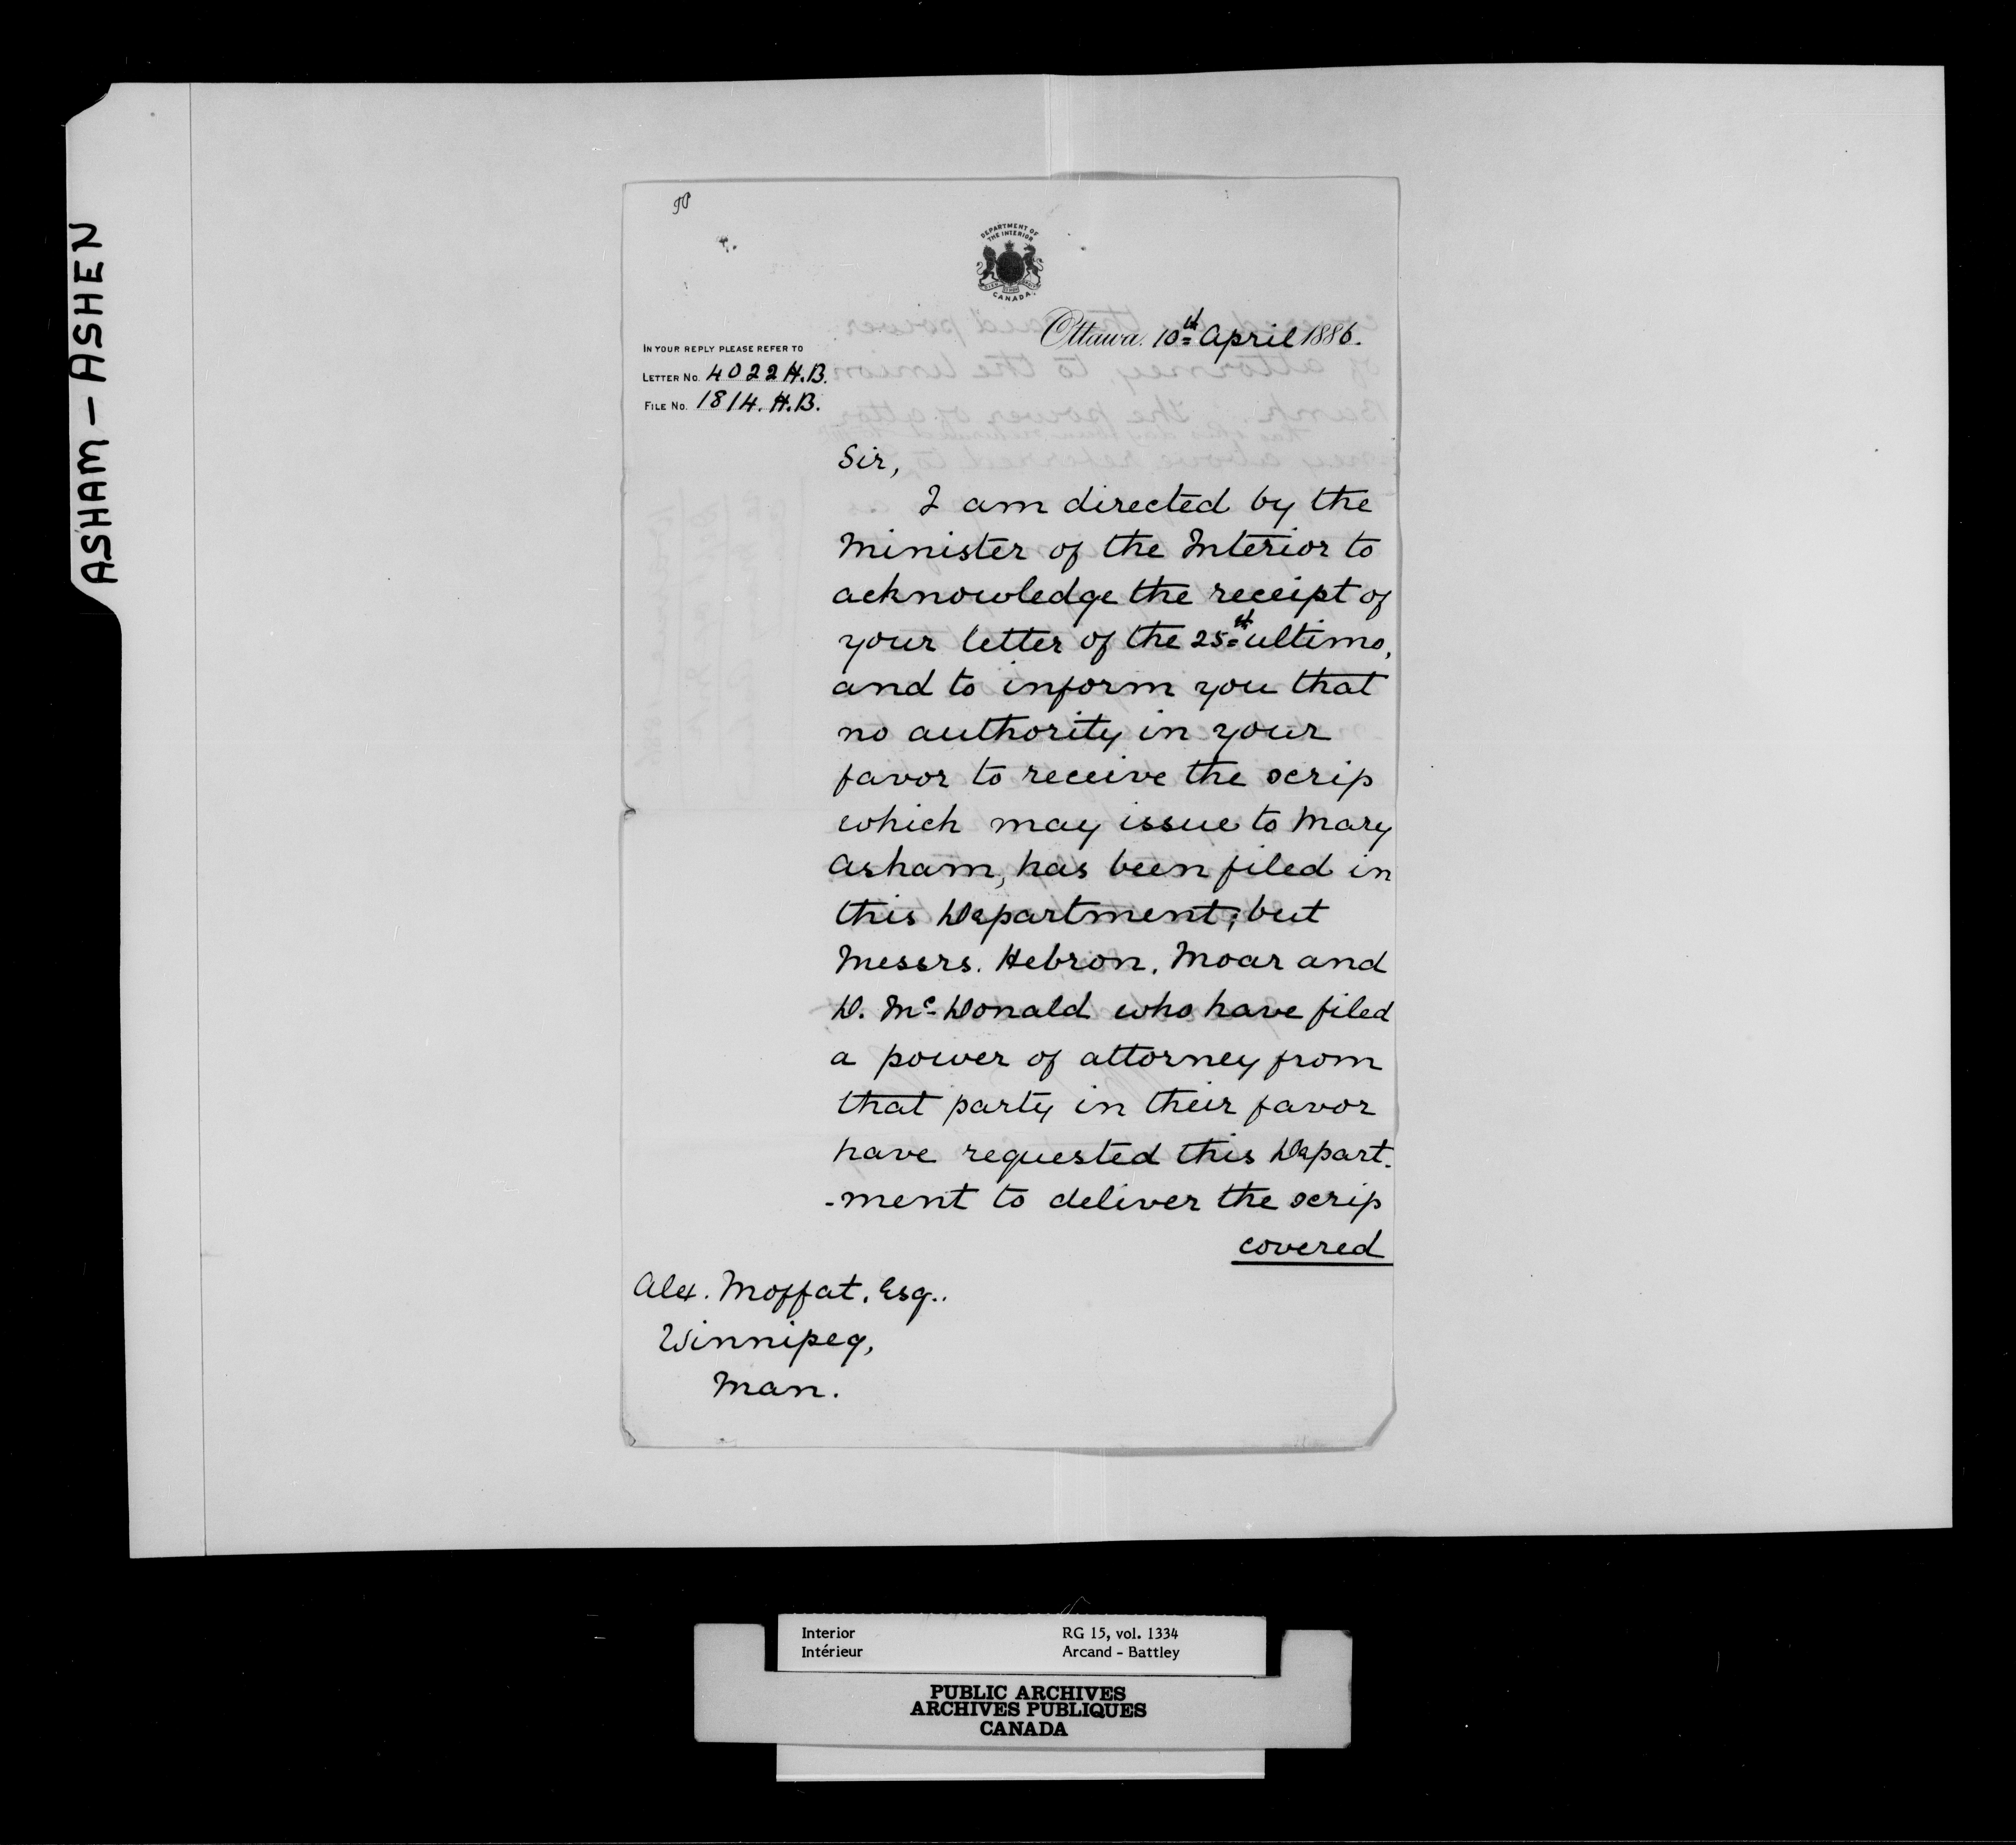 ASHAM - ASHEN
DEPARTMENT OF
THE INTERIOR
CANADA
Ottawa. 10th April 1886.
IN YOUR REPLY PLEASE REFER TO
LETTER No. 4022 H.B.
FILE No. 1814. H.B.
Sir,
I am directed by the
Minister of the Interior to
acknowledge the receipt of
your letter of the 25th ultimo,
and to inform you that
no authority in your
favor to receive the scrip
which may issue to Mary
Asham, has been filed in
this Department; but
Messrs. Hebron, Moar and
D. Mc Donald who have filed
a power of attorney from
that party in their favor
have requested this Depart-
-ment to deliver the scrip
covered
Alex. Moffat. Esq..
Winnipeg,
Man.
Interior RG 15, vol. 1334
Intérieur Arcand - Battley
PUBLIC ARCHIVES
ARCHIVES PUBLIQUES
CANADA